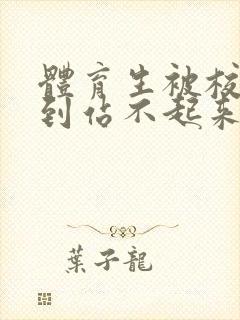 體育生被校
到佔不起來
葉子龍